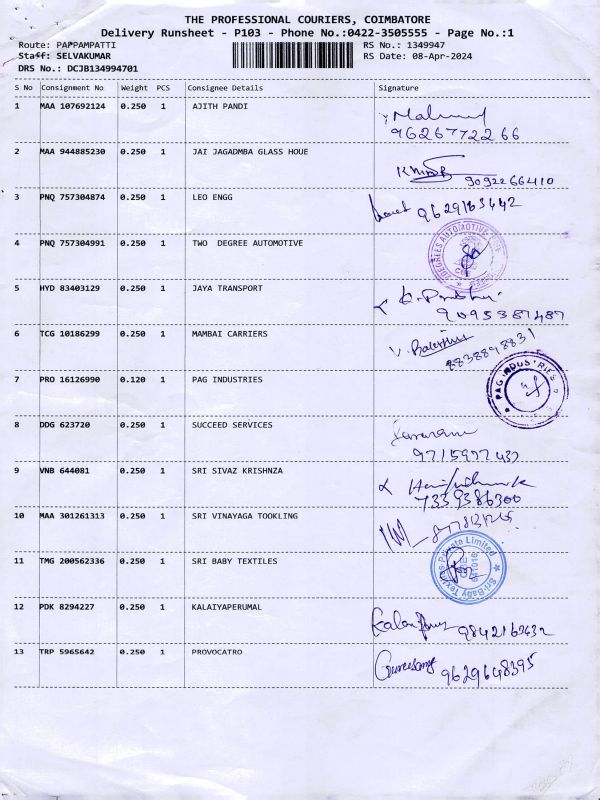 THE PROFESSIONAL COURIERS, COIMBATORE
Delivery Runsheet - P103 - Phone No.:0422-3505555 - Page No.:1
Route: PAPPAMPATTI RS No.: 1349947
Staff: SELVAKUMAR RS Date: 08-Apr-2024
DRS No.: DCJB134994701
S No Consignment No Weight PCS Consignee Details Signature
1 MAA 107692124 0.250 1 AJITH PANDI
9626772266
2 MAA 944885230 0.250 1 JAI JAGADMBA GLASS HOUE
9092266410
3 PNQ 757304874 0.250 1 LEO ENGG
9629163442
4 PNQ 757304991 0.250 1 TWO DEGREE AUTOMOTIVE
5 HYD 83403129 0.250 1 JAYA TRANSPORT
9095387487
6 TCG 10186299 0.250 1 MAMBAI CARRIERS
8838898831
7 PRO 16126990 0.120 1 PAG INDUSTRIES
PAG INDUSTRIES
8 DDG 623720 0.250 1 SUCCEED SERVICES
9715977437
9 VNB 644081 0.250 1 SRI SIVAZ KRISHNZA
7339386300
10 MAA 301261313 0.250 1 SRI VINAYAGA TOOKLING
11 TMG 200562336 0.250 1 SRI BABY TEXTILES
Sri Baby Texties Private Limited
12 PDK 8294227 0.250 1 KALAIYAPERUMAL
13 TRP 5965642 0.250 1 PROVOCATRO
9629648395